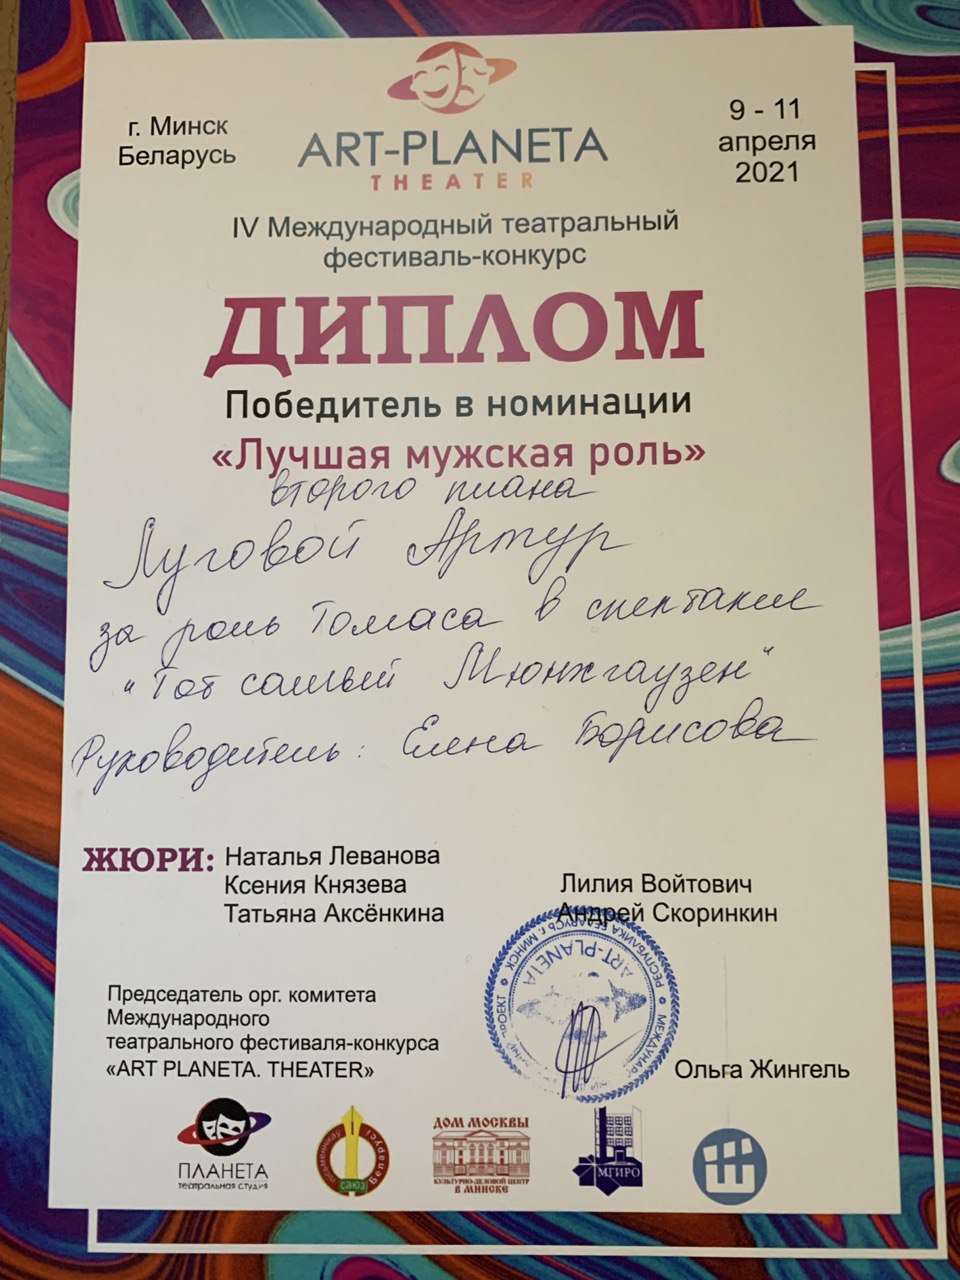 г. Минск
Беларусь
ART-PLANETA
THEATER
9 - 11
апреля
2021
IV Международный театральный
фестиваль-конкурс
ДИПЛОМ
Победитель в номинации
«Лучшая мужская роль»
второго плана
Луговой Артур
за роль Томаса в спектакле
"Тот самый Мюнхгаузен"
Руководитель: Елена Борисова
ЖЮРИ: Наталья Леванова
Ксения Князева
Татьяна Аксёнкина
Лилия Войтович
Андрей Скоринкин
РЕСПУБЛИКА БЕЛАРУСЬ г. МИНСК
ART-PLANETA
Председатель орг. комитета
Международного
театрального фестиваля-конкурса
«ART PLANETA. THEATER»
Ольга Жингель
ПЛАНЕТА
театральная студия
саюз
Беларусі
ДОМ МОСКВЫ
КУЛЬТУРНО-ДЕЛОВОЙ ЦЕНТР
В МИНСКЕ
МГИРО